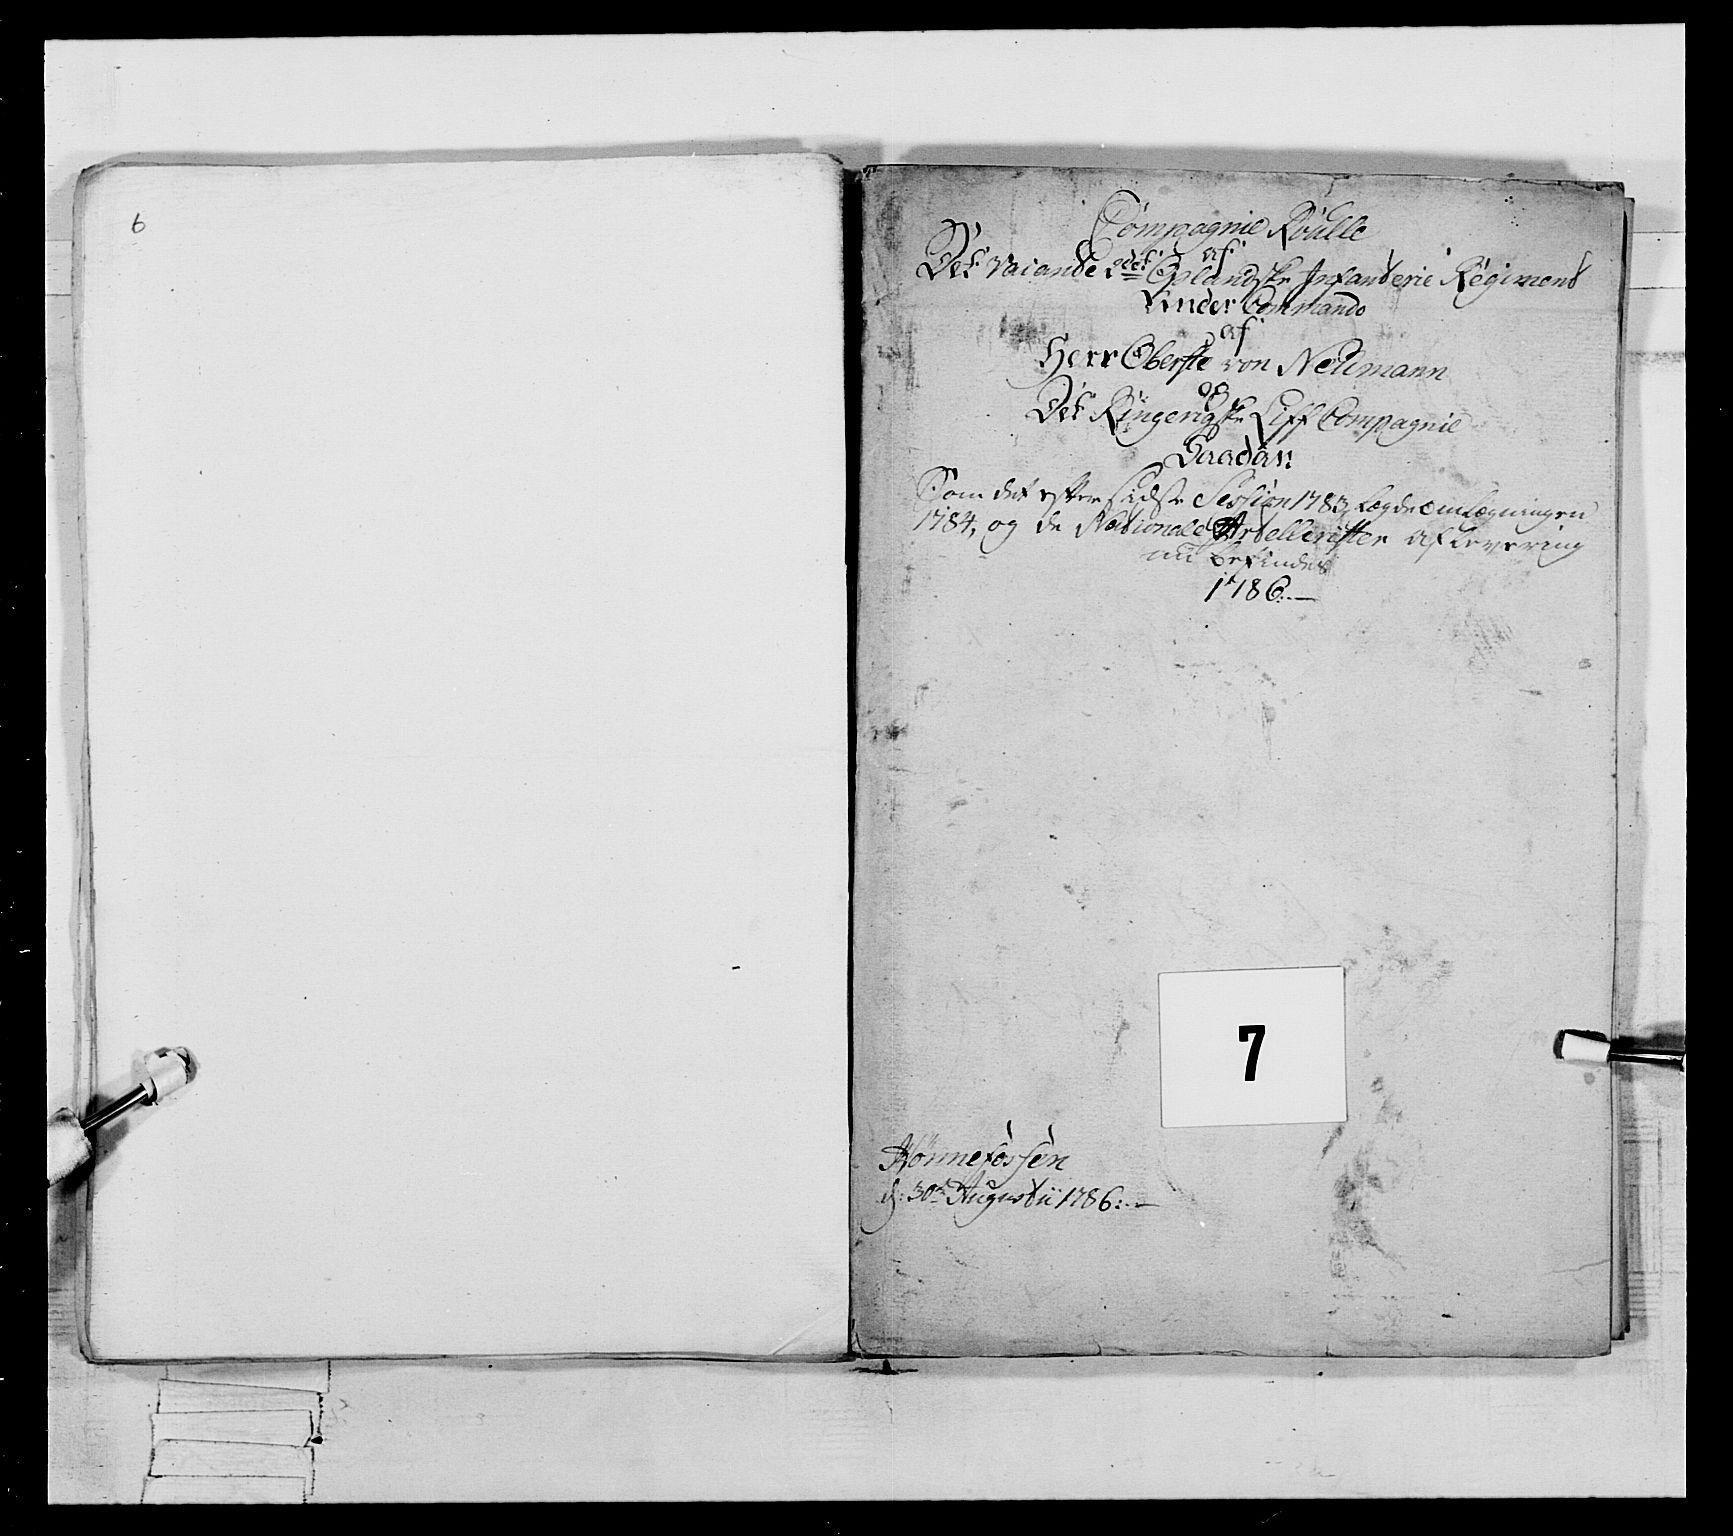 6
Compagnie Roulle
af
Det vacante 2det Oplandske Infanterie Regiment
Under Commando
af
Herr Oberste von Neumann
og
Det Ringerigske Liff Compagnie
Saadan
Som det efter sidste Session 1783, Lægdeomlægningen
1784, og de Nationale Artellerister aflevering
nu befindes
1786.—
7
Hønnefossen
d: 30te Augustii 1786.—